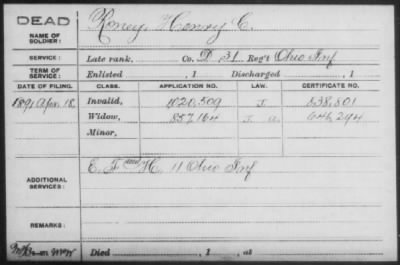 DEAD
NAME OF SOLDIER: Roney, Henry C.
SERVICE: Late rank, Co. D 31 Reg't Ohio Inf
TERM OF SERVICE: Enlisted , 1 Discharged , 1
DATE OF FILING. CLASS. APPLICATION NO. LAW. CERTIFICATE NO.
1891 Apr. 18. Invalid, 1020,509 J. 838,801
Widow, 857164 J. a. 646,294
Minor,
ADDITIONAL SERVICES: E. F and H. 11 Ohio Inf
REMARKS:
Died , 1 , at